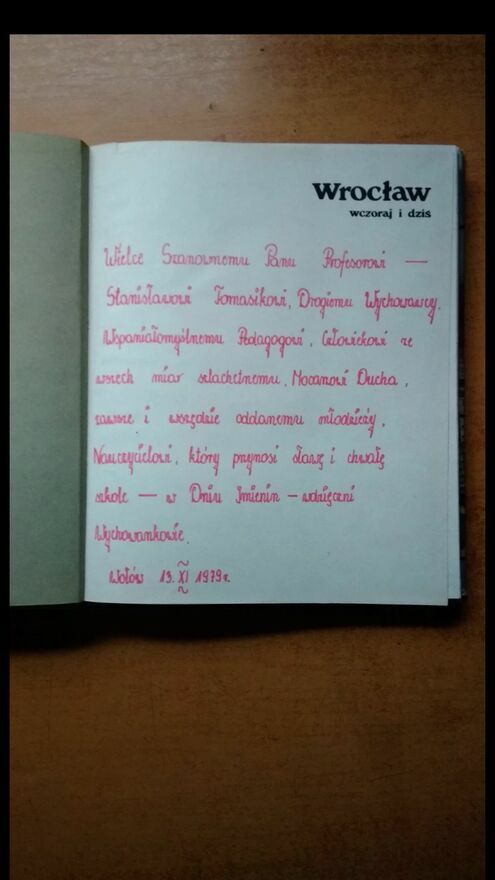 Wrocław
wczoraj i dziś
Wielce Szanownemu Panu Profesorowi —
Stanisławowi Tomasikowi, Drogiemu Wychowawcy,
Wspaniałomyślnemu Pedagogowi, Człowiekowi ze
wszech miar szlachetnemu, Mocarzowi Ducha,
zawsze i wszędzie oddanemu młodzieży,
Nauczycielowi, który przynosi sławę i chwałę
szkole — w Dniu Imienin – wdzięczni
Wychowankowie.
Wołów 13. XI 1979 r.